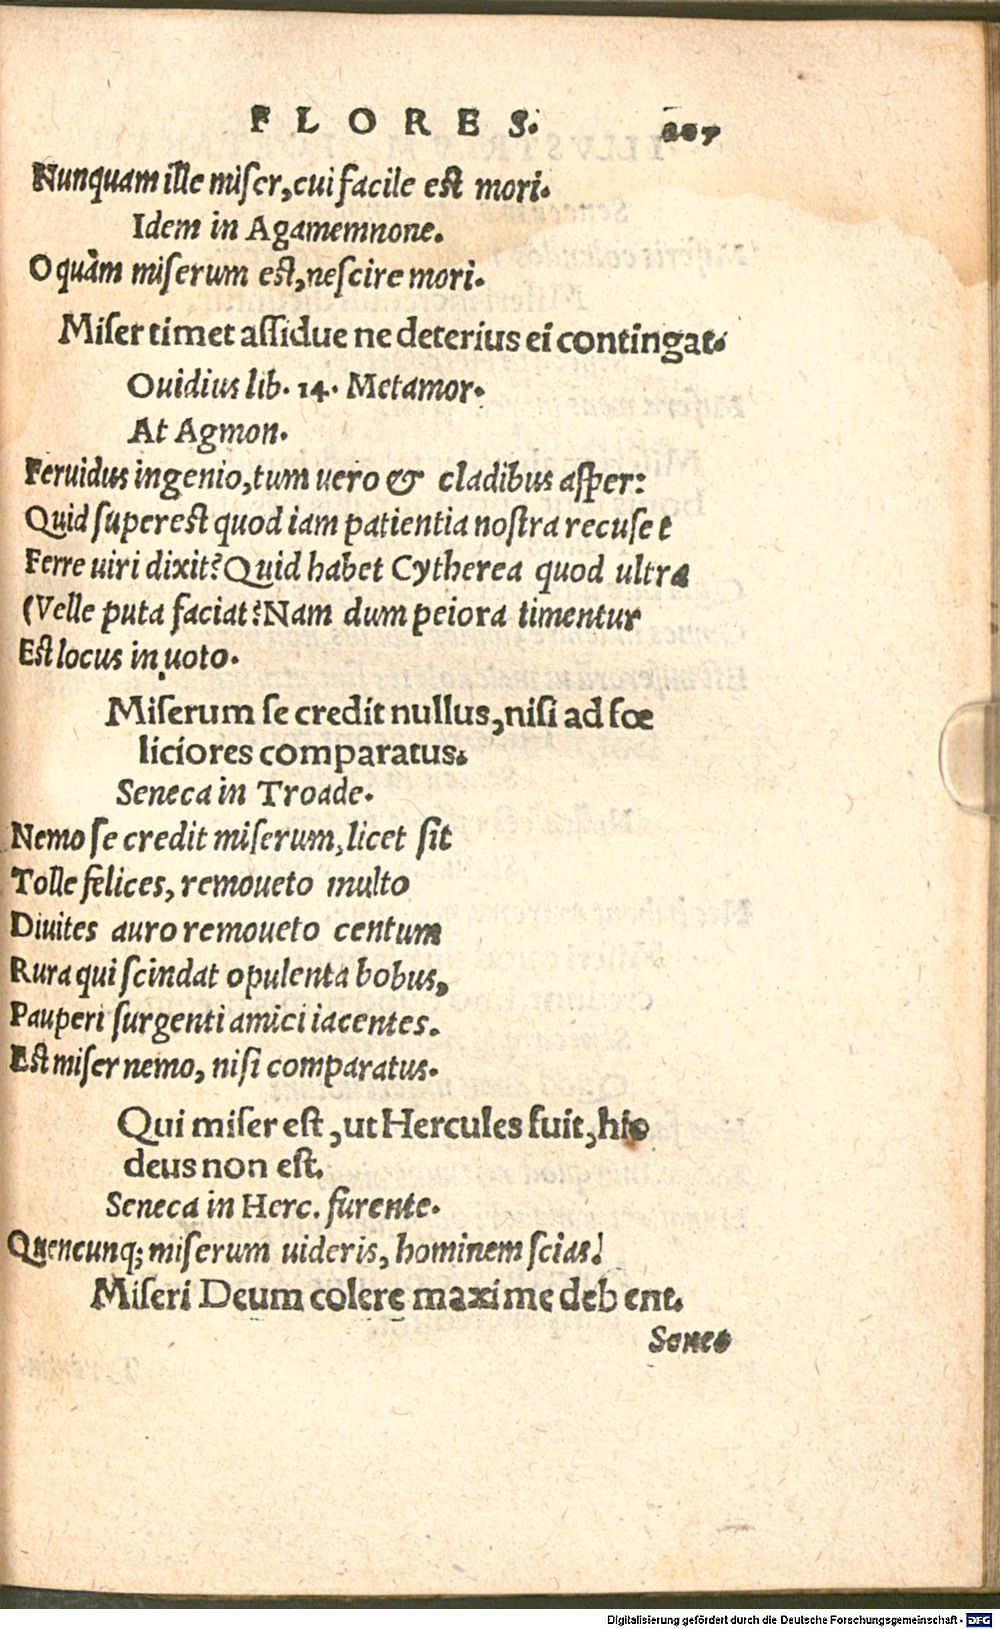 FLORES. 207
Nunquam ille miser, cui facile est mori.
Idem in Agamemnone.
O quàm miserum est, nescire mori.
Miser timet assidue ne deterius ei contingat.
Ouidius lib. 14. Metamor.
At Agmon.
Feruidus ingenio, tum uero & cladibus asper:
Quid superest quod iam patientia nostra recuset
Ferre uiri dixit? Quid habet Cytherea quod ultra
(Velle puta faciat? Nam dum peiora timentur
Est locus in uoto.
Miserum se credit nullus, nisi ad fœ
liciores comparatus.
Seneca in Troade.
Nemo se credit miserum, licet sit
Tolle felices, remoueto multo
Diuites auro remoueto centum
Rura qui scindat opulenta bobus,
Pauperi surgenti amici iacentes.
Est miser nemo, nisi comparatus.
Qui miser est, ut Hercules fuit, hic
deus non est.
Seneca in Herc. furente.
Quencunq; miserum uideris, hominem scias!
Miseri Deum colere maxime debent.
Senec
Digitalisierung gefördert durch die Deutsche Forschungsgemeinschaft - DFG